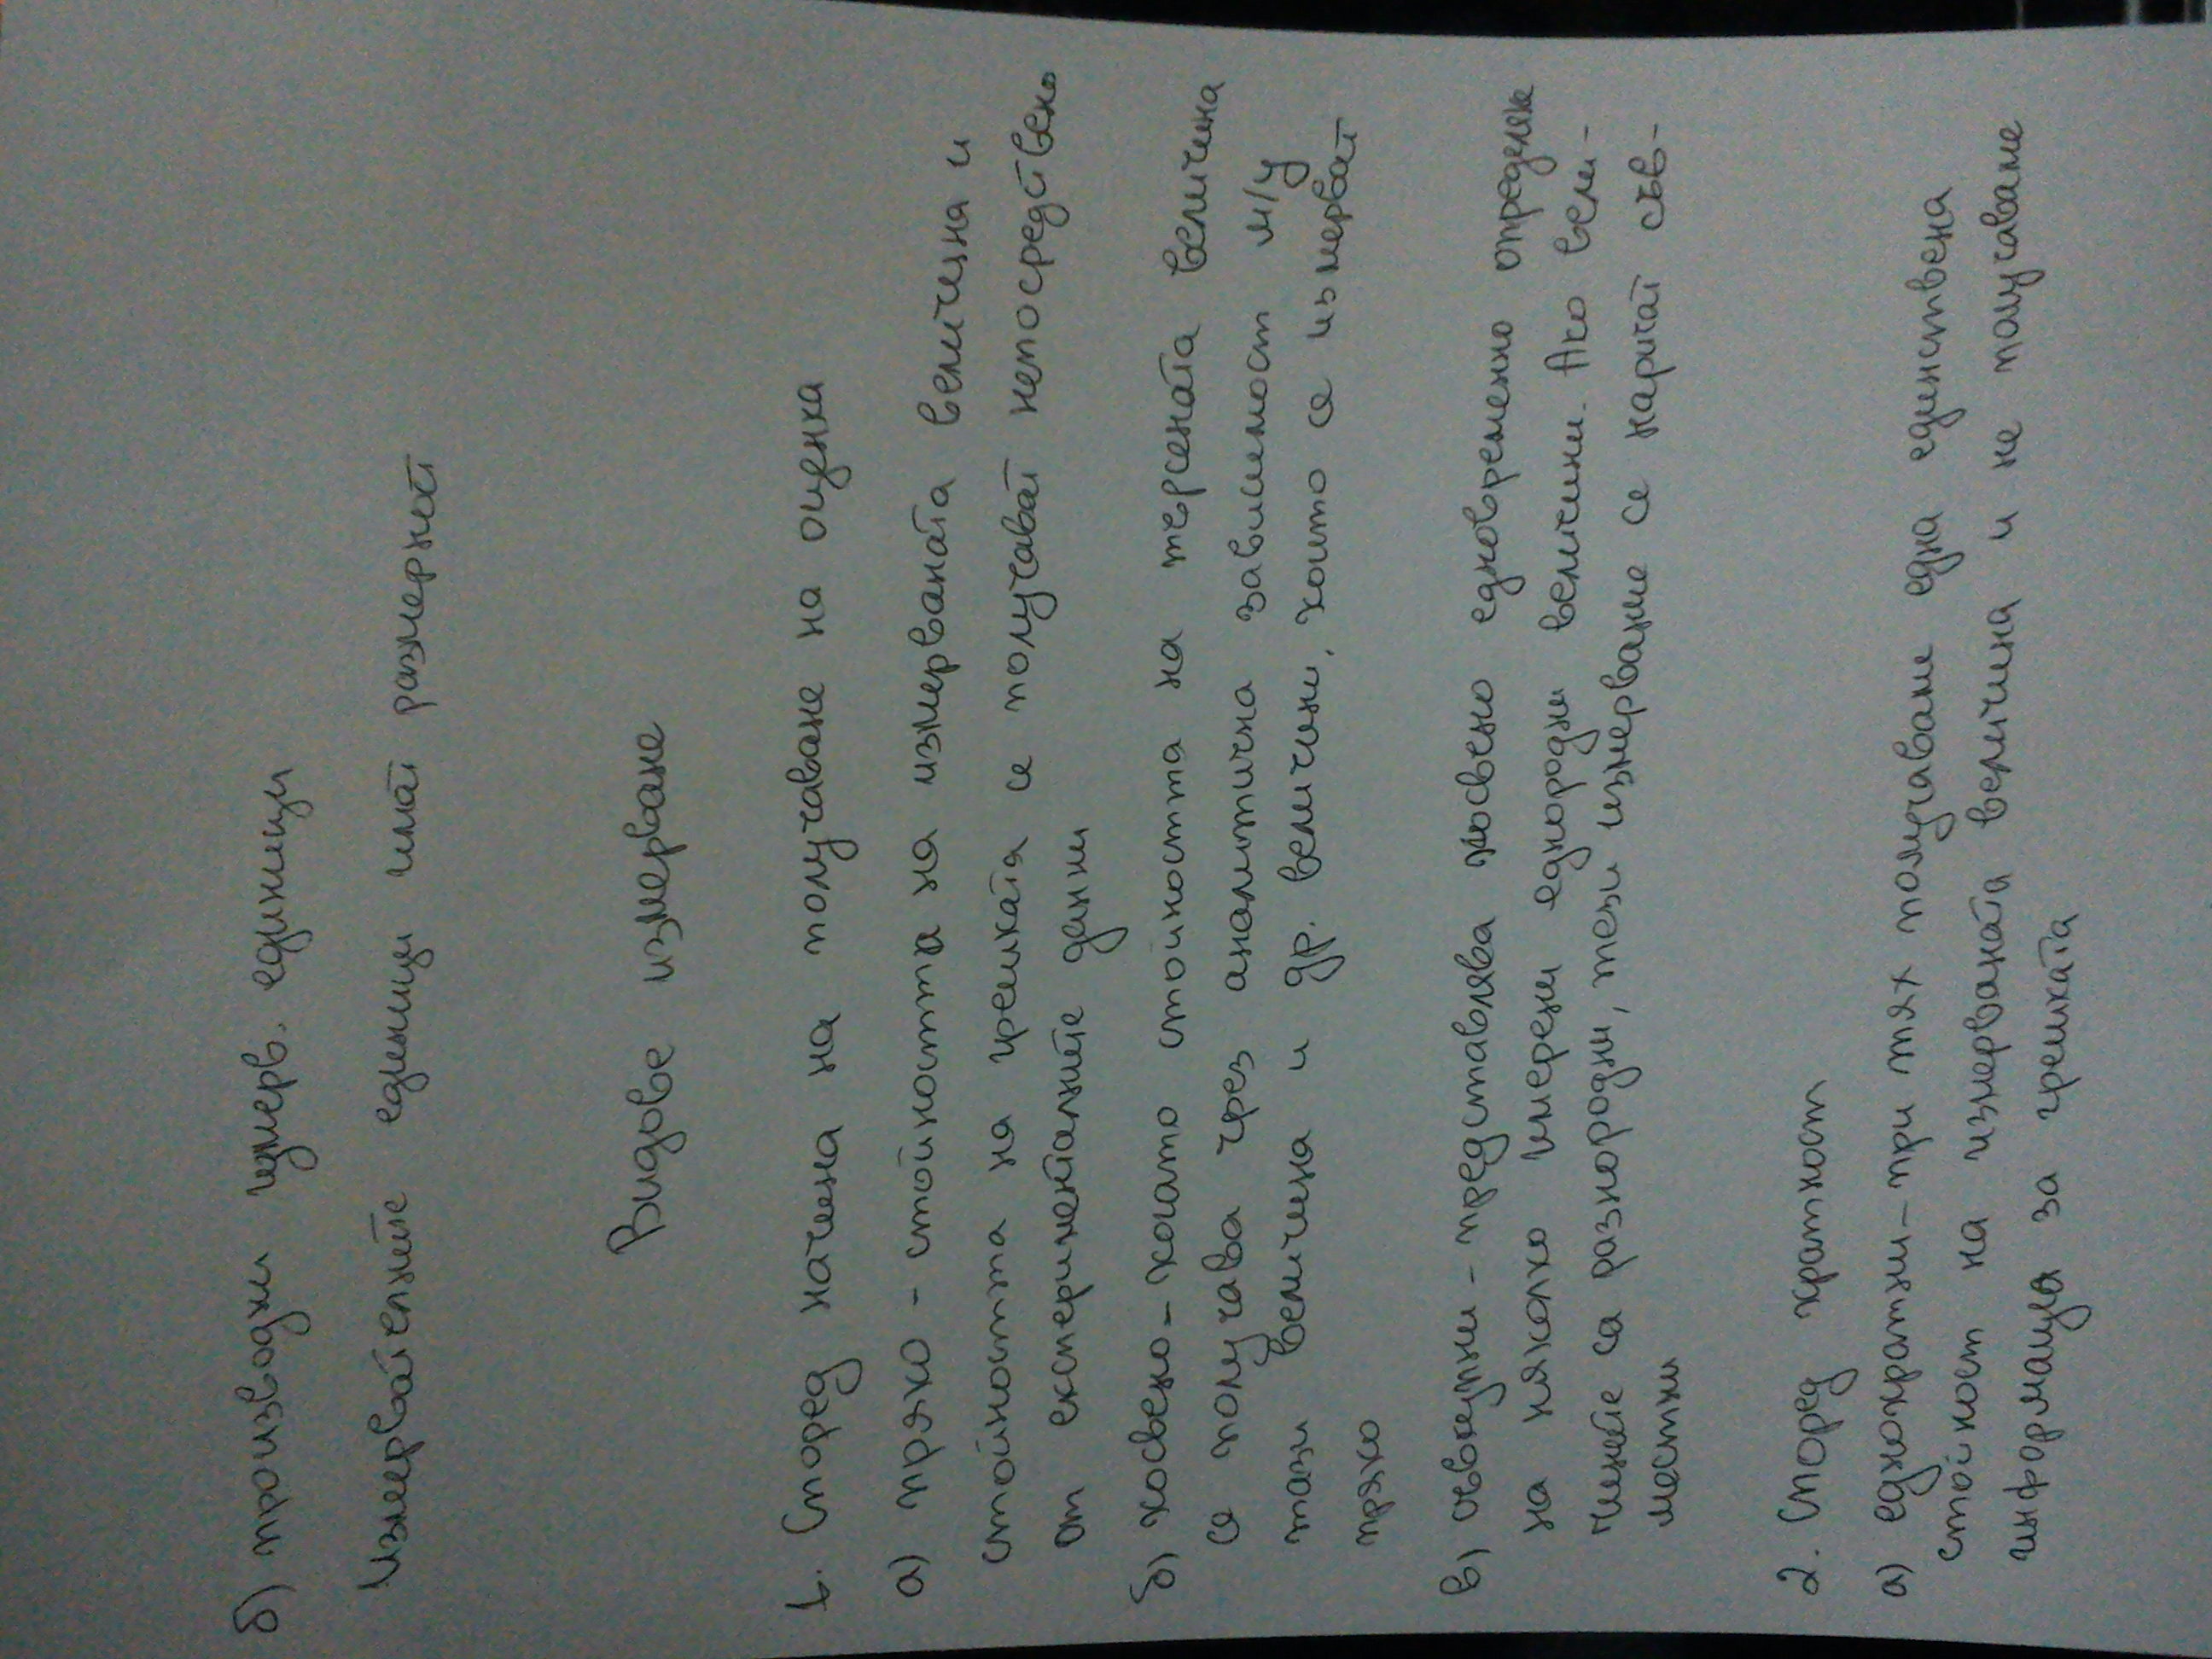 б) производни измерв. единици
Измервателните единици имат размерност
Видове измерване
1. Според начина на получаване на оценка
а) пряко - стойността на измерваната величина и
стойността на грешката се получават непосредствено
от експерименталните данни
б) косвено - когато стойността на търсената величина
се получава чрез аналитична зависимост м/у
тази величина и др. величини, които се измерват
пряко
в) съвкупни - представлява косвено едновременно определяне
на няколко имерени еднородни величини. Ако вели-
чините са разнородни, тези измерване се наричат съв-
местни
2. Според кратност
а) еднократни - при тях получаваме една единствена
стойност на измерваната величина и не получаваме
информация за грешката